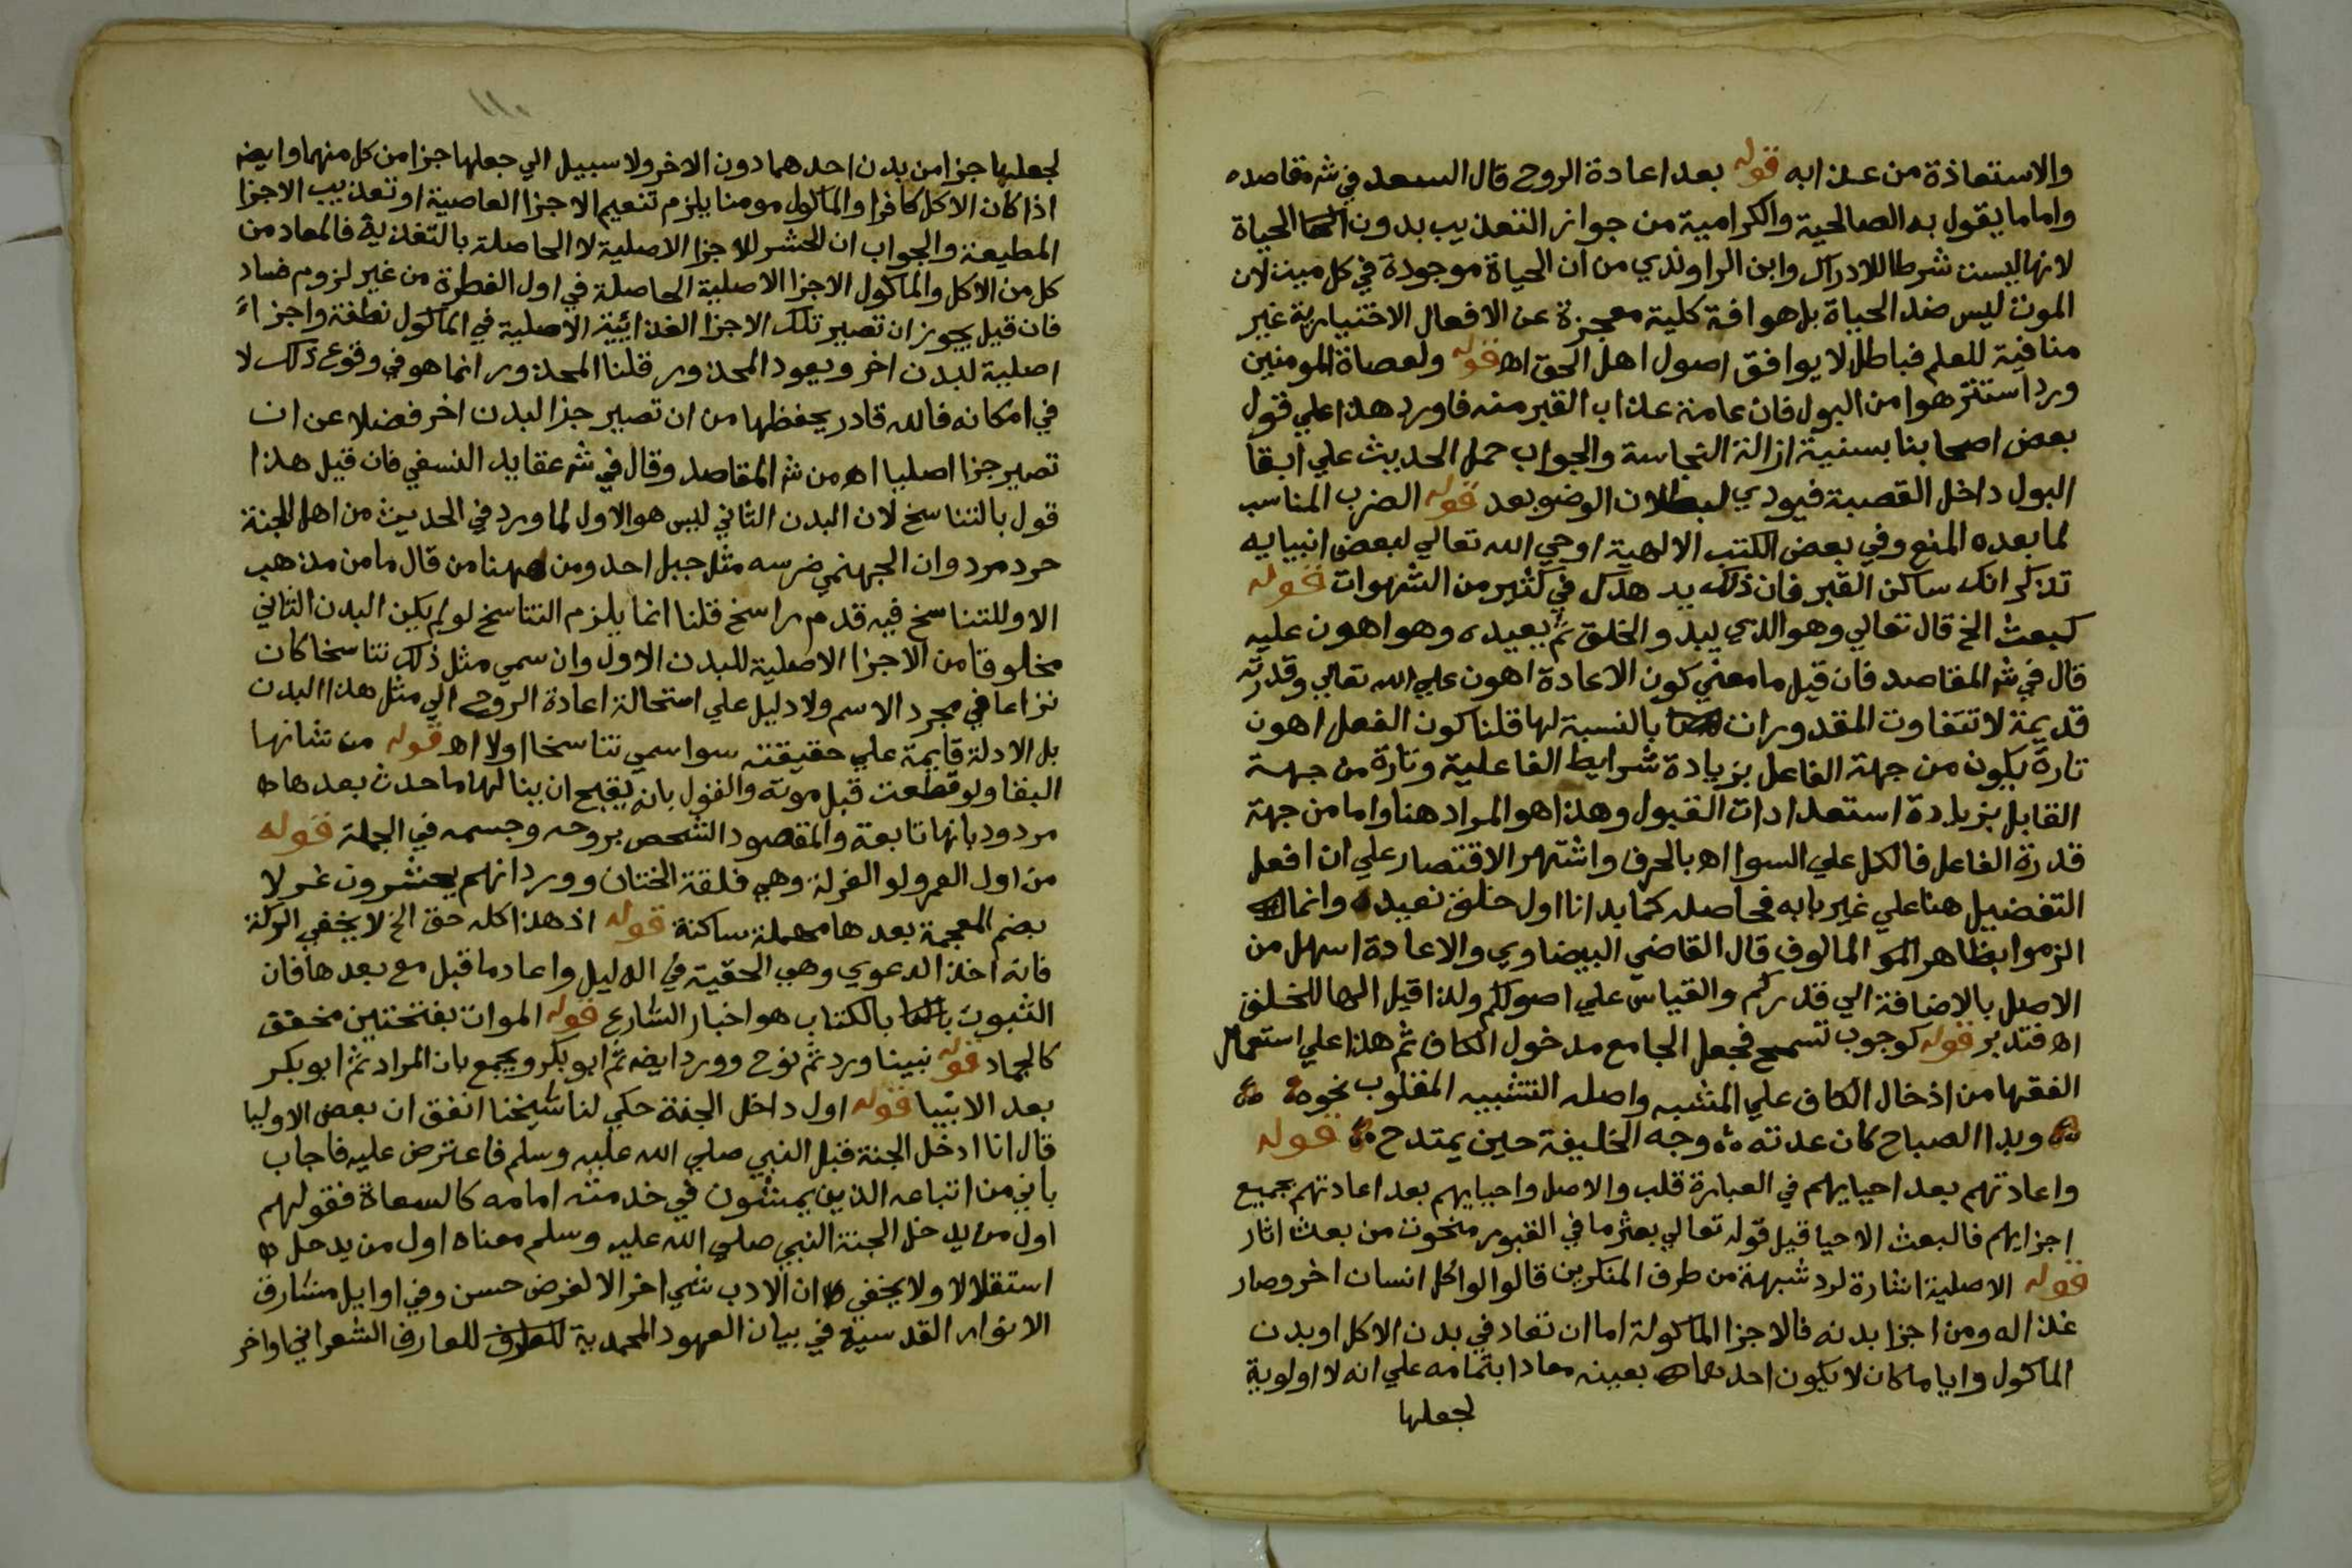 والاستعاذة من عذابه قوله بعد اعادة الروح قال السعد في شر مقاصده
واما ما يقول به الصالحية والكرامية من جواز التعذيب بدون الحياة
لانها ليست شرطا للادراك وابن الراوندي من ان الحياة موجودة في كل ميت لان
الموت ليس ضد الحياة بل هو افة كلية معجزة عن الافعال الاختيارية غير
منافية للعلم فباطل لا يوافق اصول اهل الحق اه قوله ولعصاة المومنين
ورد استنزهوا من البول فان عامة عذاب القبر منه فاورد هذا علي قول
بعض اصحابنا بسنية ازالة النجاسة والجواب حمل الحديث علي ابقا
البول داخل القصبة فيودي لبطلان الوضو بعد قوله الضرب المناسب
لما بعده المنع وفي بعض الكتب الالهية اوحي الله تعالي لبعض انبيايه
تذكر انك ساكن القبر فان ذلك يزهدك في كثير من الشهوات قوله
كبعث الخ قال تعالي وهو الذي يبدو الخلق ثم يعيده وهو اهون عليه
قال في شر المقاصد فان قيل ما معني كون الاعادة اهون علي الله تعالي وقدرته
قديمة لا تتفاوت المقدورات بالنسبة لها قلنا كون الفعل اهون
تارة يكون من جهة الفاعل بزيادة شرايط الفاعلية وتارة من جهة
القابل بزيادة استعدادات القبول وهذا هو المراد هنا واما من جهة
قدرة الفاعل فالكل علي السوا اه بالحرف واشتهر الاقتصار علي ان افعل
التفضيل هنا علي غير بابه فحاصله كما بدانا اول خلق نعيده وانما
الزموا بظاهر المالوف قال القاضي البيضاوي والاعادة اسهل من
الاصل بالاضافة الي قدركم والقياس علي اصولكم ولذا قيل الها للخلق
اه فتدبر قوله كوجوب تسمح فجعل الجامع مدخول الكاف ثم هذا علي استعمال
الفقها من ادخال الكاف علي المشبه واصله التشبيه المقلوب نحوه
وبدا الصباح كان عدته وجه الخليفة حين يمتدح قوله
واعادتهم بعد احيايهم في العبارة قلب والاصل واحيايهم بعد اعادتهم بجميع
اجزايهم فالبعث الاحيا قيل قوله تعالي بعثر ما في القبور منحوت من بعث اثار
قوله الاصلية اشارة لرد شبهة من طرف المنكرين قالوا لو اكل انسان اخر وصار
غذا له ومن اجزا بدنه فالاجزا الماكولة اما ان تعاد في بدن الاكل او بدن
الماكول وايا ما كان لا يكون احدهما بعينه معادا بتمامه علي انه لا اولوية
لجعلها
لجعلها جزا من بدن احدهما دون الاخر ولا سبيل الي جعلها جزا من كل منهما وايضه
اذا كان الاكل كافرا والماكول مومنا يلزم تنعيم الاجزا العاصية او تعذيب الاجزا
المطيعة والجواب ان الحشر للاجزا الاصلية لا الحاصلة بالتغذية فالمعاد من
كل من الاكل والماكول الاجزا الاصلية الحاصلة في اول الفطرة من غير لزوم فساد
فان قيل يجوز ان تصير تلك الاجزا الغذائية الاصلية في الماكول نطفة واجزاء
اصلية لبدن اخر ويعود المحذور قلنا المحذور انما هو في وقوع ذلك لا
في امكانه فالله قادر يحفظها من ان تصير جزا لبدن اخر فضلا عن ان
تصير جزا اصليا اه من شر المقاصد وقال في شر عقايد النسفي فان قيل هذا
قول بالتناسخ لان البدن الثاني ليس هو الاول لما ورد في الحديث من اهل الجنة
جرد مرد وان الجهنمي ضرسه مثل جبل احد ومن ههنا من قال ما من مذهب
الا وللتناسخ فيه قدم راسخ قلنا انما يلزم التناسخ لو لم يكن البدن الثاني
مخلوقا من الاجزا الاصلية للبدن الاول وان سمي مثل ذلك تناسخا كان
نزاعا في مجرد الاسم ولا دليل علي استحالة اعادة الروح الي مثل هذا البدن
بل الادلة قايمة علي حقيقته سوا سمي تناسخا اولا اه قوله من شانها
البقا ولو قطعت قبل موته والقول بانه يقبح ان ينالها ما حدث بعدها
مردود بانها تابعة والمقصود الشخص بروحه وجسمه في الجملة قوله
من اول العمر ولو الغرلة وهي قلفة الختان وورد انهم يحشرون غرلا
بضم المعجمة بعدها مهملة ساكنة قوله اذ هذا كله حق الخ لا يخفي الركة
فانه اخذ الدعوي وهي الحقية في الدليل واعاد ما قبل مع بعدها فان
الثبوت بالكتاب هو اخبار الشارع قوله الموات بفتحتين مخفف
كالجماد قوله نبينا ورد ثم نوح وورد ايضه ثم ابو بكر ويجمع بان المراد ثم ابو بكر
بعد الانبيا قوله اول داخل الجنة حكي لنا شيخنا اتفق ان بعض الاوليا
قال انا ادخل الجنة قبل النبي صلي الله عليه وسلم فاعترض عليه فاجاب
باني من اتباعه الذين يمشون في خدمته امامه كالسعاة فقولهم
اول من يدخل الجنة النبي صلي الله عليه وسلم معناه اول من يدخل
استقلالا ولا يخفي ان الادب شي اخر الا لغرض حسن وفي اوايل مشارق
الانوار القدسية في بيان العهود المحمدية للعارف الشعراني اواخر